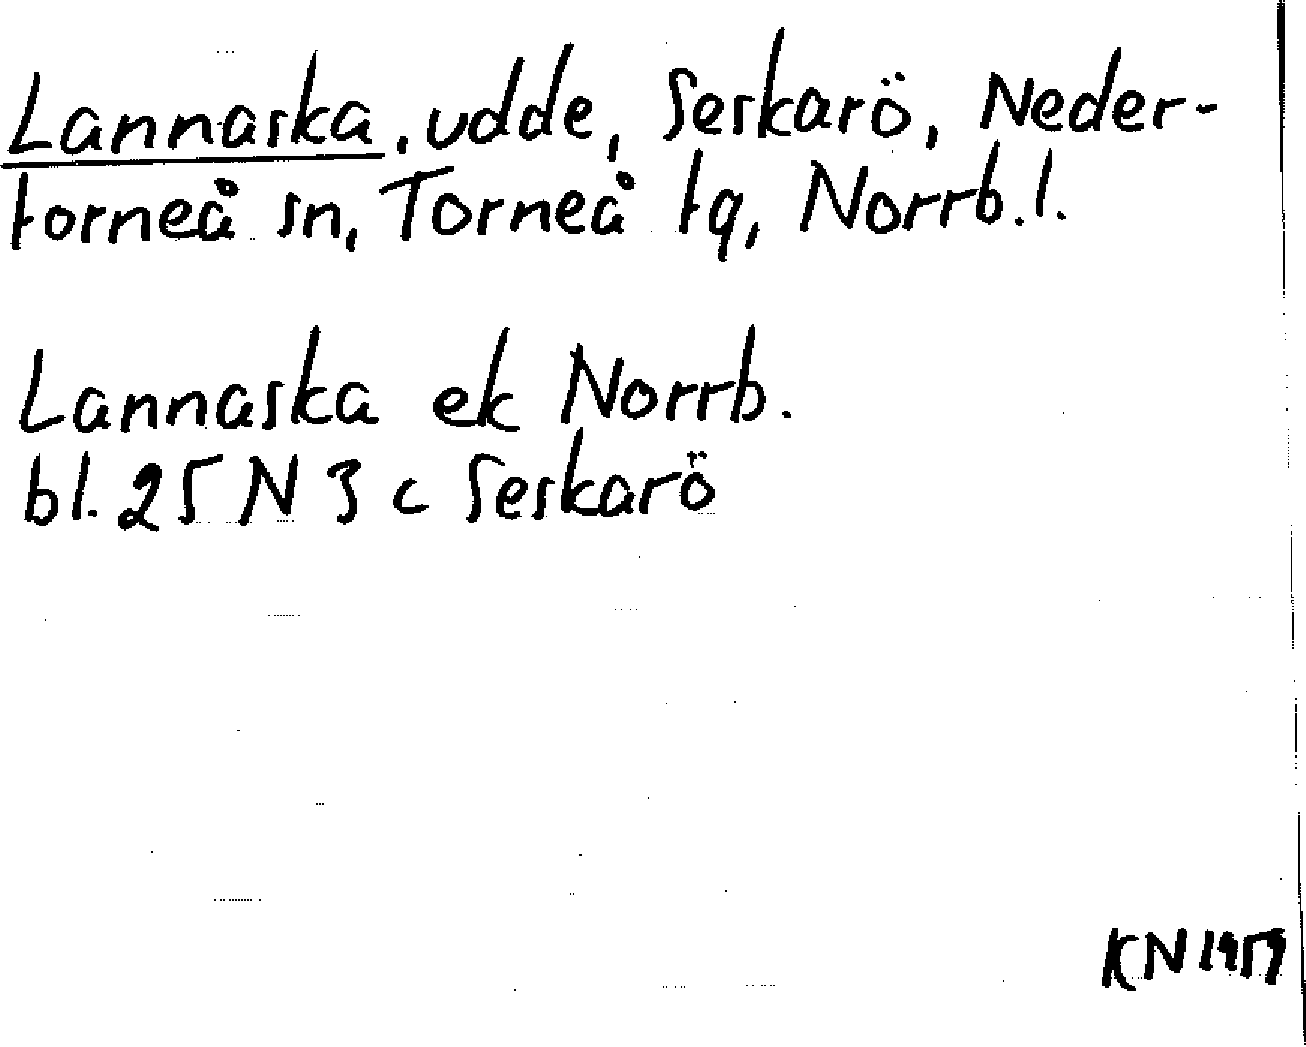 Lannaska, udde, Seskarö, Neder-
torneå sn, Torneå tg, Norrb.l.
Lannaska ek Norrb.
bl. 25 N 3 c Seskarö
KN